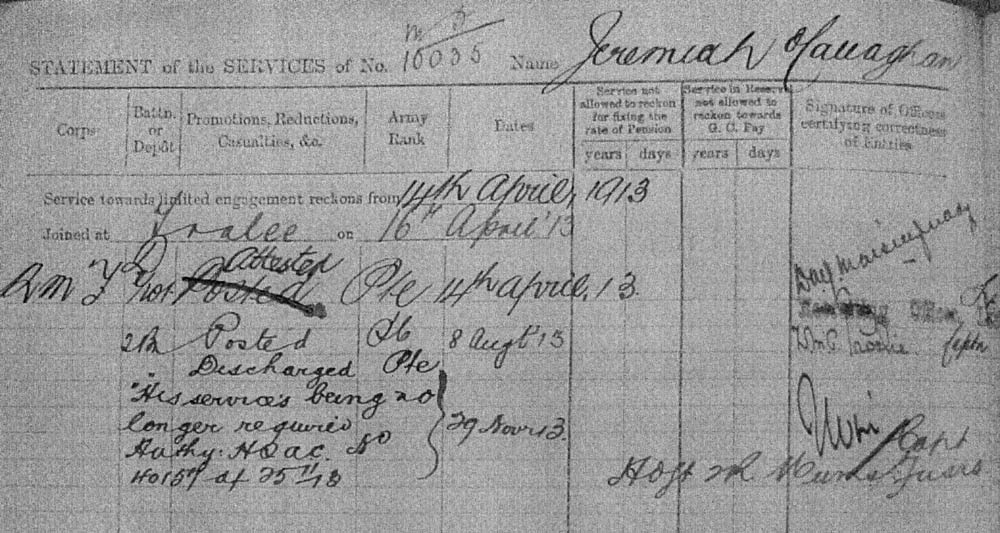 STATEMENT of the SERVICES of No. 10035 Name Jeremiah O'Callaghan
Corps
Battn. or Depôt
Promotions, Reductions, Casualties, &c.
Army Rank
Dates
Service not allowed to reckon for fixing the rate of Pension
years days
Service in Reserve not allowed to reckon towards G. C. Pay
years days
Signature of Officers certifying correctness of Entries
Service towards limited engagement reckons from 14th April, 1913
Joined at Tralee on 16th April '13
Attested
R M F Posted Pte 14th April, 13.
2nd Posted Pte 8 Augt 13
Discharged Pte
"His services being no
longer required
Authy. H Q 29 Novr 13.
Capt
Capt